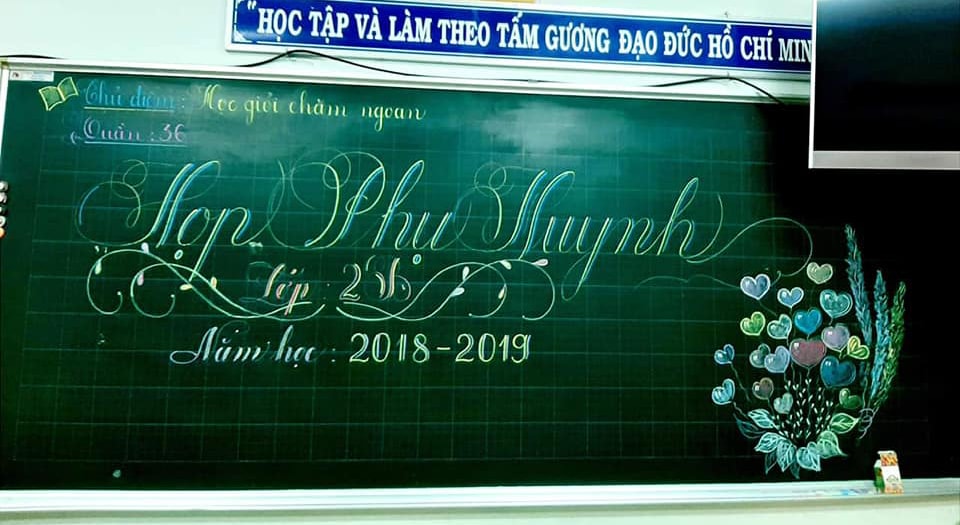 "HỌC TẬP VÀ LÀM THEO TẤM GƯƠNG ĐẠO ĐỨC HỒ CHÍ MIN
Chủ điểm : Học giỏi chăm ngoan
Tuần : 36
Họp Phụ Huynh
Lớp : 2
Năm học : 2018-2019